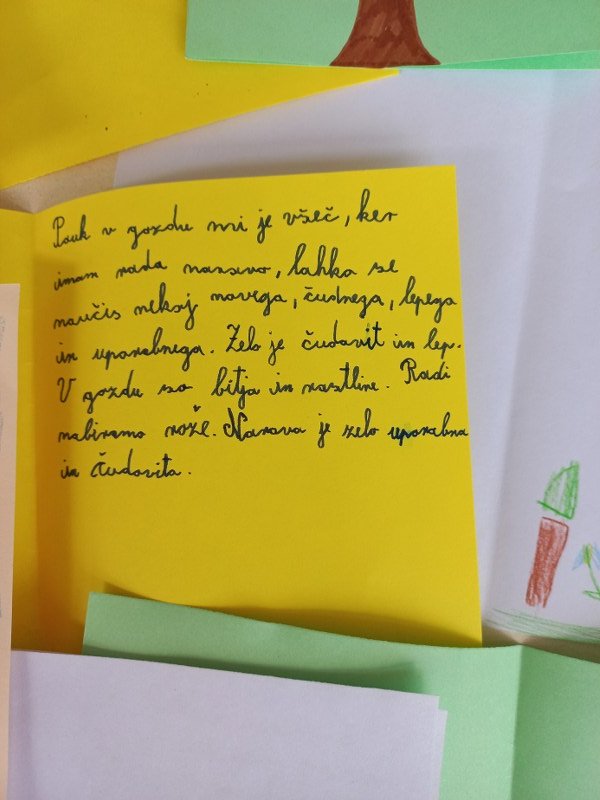 Pouk v gozdu mi je všeč, ker
imam rada naravo, lahko se
naučiš nekaj novega, čudnega, lepega
in uporabnega. Zelo je čudovit in lep.
V gozdu so bitja in rastline. Radi
nabiramo rože. Narava je zelo uporabna
in čudovita.